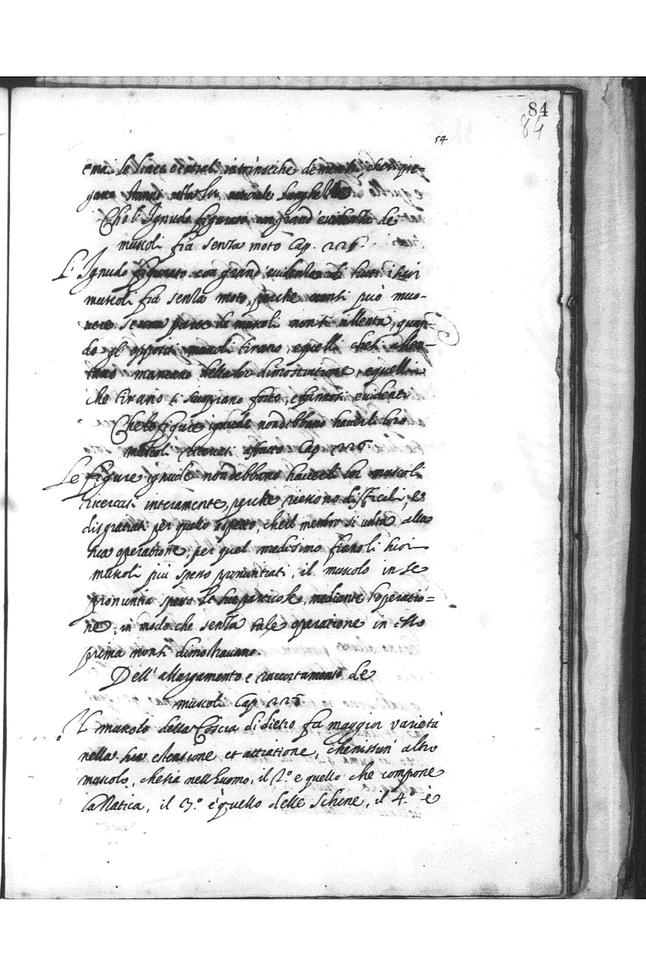 84
84
54
ena, le linee centrali intrinseche de membri, che si pie-
gano stanno nella lor naturale lunghezza
Che l'Ignudo figurato con grand'evidenza de
muscoli fia senza moto Cap. 226
L'Ignudo figurato con grand'evidenza di tutti i suoi
muscoli fia senza moto, perche non si può muo-
vere se una parte de muscoli non si allenta, quan-
do gl'oppositi muscoli tirano, e quelli che si allen-
tano mancano della lor dimostratione, e quelli
che tirano si scuoprano forte, e fannosi evidenti
Che le figure ignude non debbano havere li loro
muscoli ricercati affatto Cap. 226
Le figure ignude non debbono haverli lor muscoli
ricercati interamente, perche riescono difficili, et
disgratiati per quello aspetto, che il membro si volta alla
sua operatione, per quel medesimo siano li suoi
muscoli più spesso pronuntiati, il muscolo in se
pronuntia spesso le sue particole, mediante l'operatio-
ne, in modo che senza tale operatione in esso
prima non si dimostravano.
Dell'allargamento e raccortamento de
muscoli Cap. 225
Il muscolo della Coscia di dietro fa maggior varietà
nella sua estensione et attratione, che nissun altro
muscolo, che sia nell'huomo, il 2.º e quello che compone
la Natica, il 3.º è quello delle Schene, il 4.º è